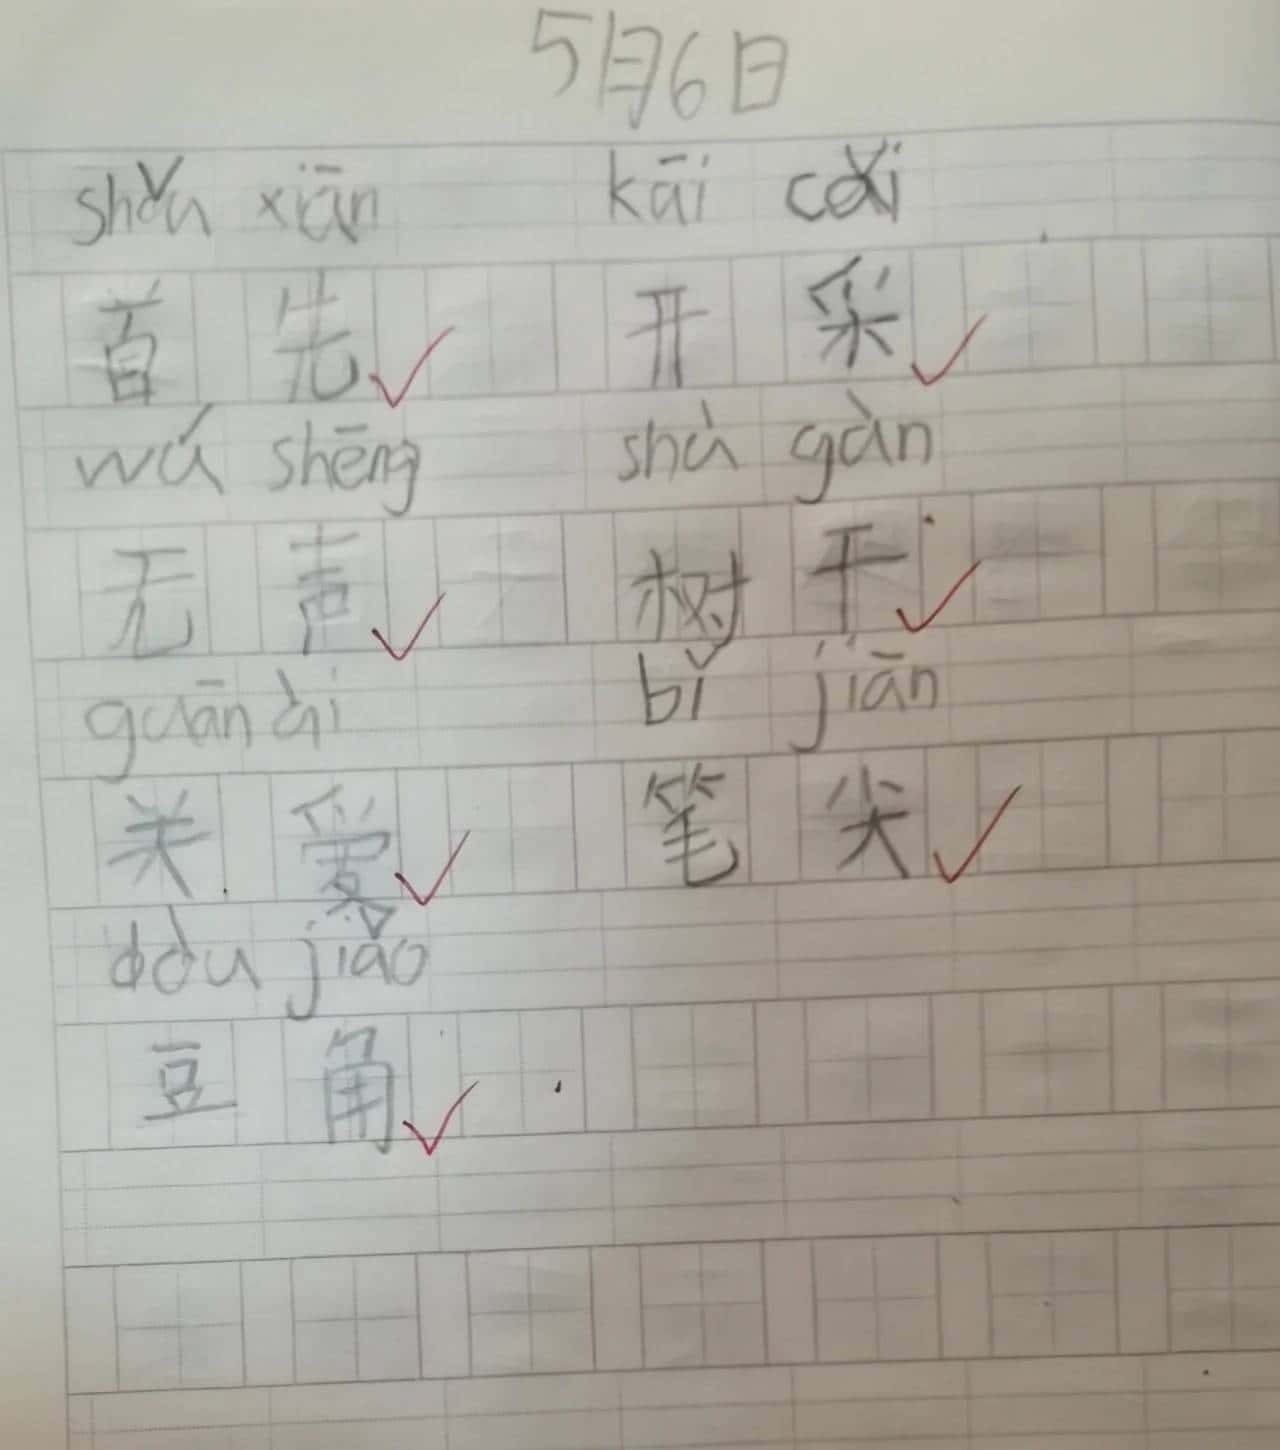 5月6日
shǒu xiān kāi cǎi
首先 开采
wú shēng shù gàn
无声 树干
guān ài bǐ jiān
关爱 笔尖
dòu jiǎo
豆角